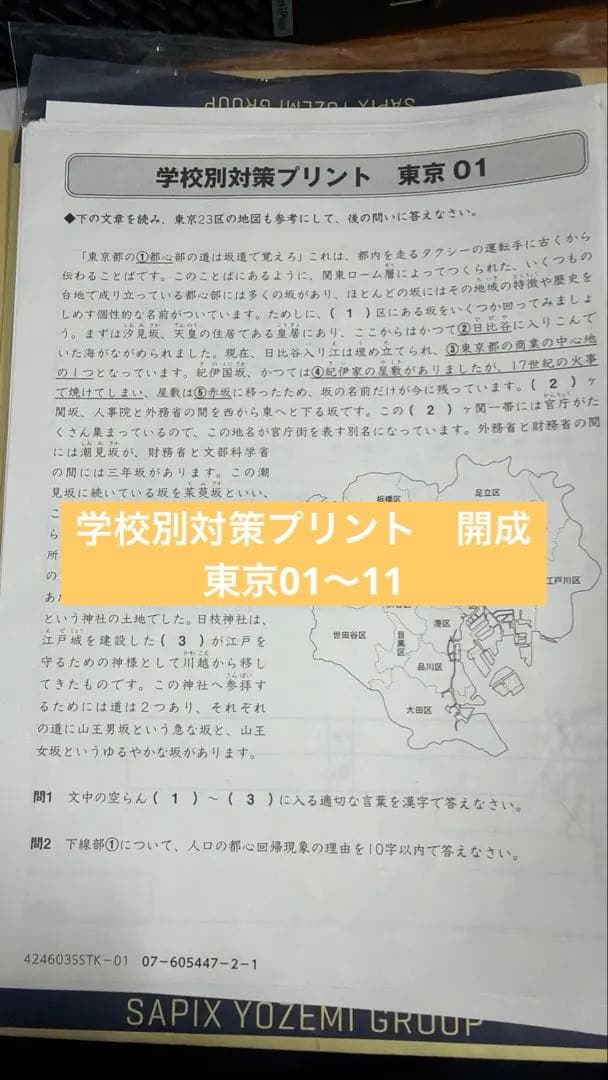 SAPIX YOZEMI GROUP
学校別対策プリント 東京 01
◆下の文章を読み、東京23区の地図も参考にして、後の問いに答えなさい。
「東京都の①都心部の道は坂道で覚えろ」これは、都内を走るタクシーの運転手に古くから
伝わることばです。このことばにあるように、関東ローム層によってつくられた、いくつもの
台地で成り立っている都心部には多くの坂があり、ほとんどの坂にはその地域の特徴や歴史を
しめす個性的な名前がついています。ためしに、( 1 )区にある坂をいくつか回ってみましょ
う。まずは汐見坂、天皇の住居である皇居にあり、ここからはかつて②日比谷に入りこんで
いた海がながめられました。現在、日比谷入り江は埋め立てられ、③東京都の商業の中心地
の1つとなっています。紀伊国坂、かつては④紀伊家の屋敷がありましたが、17世紀の火事
で焼けてしまい、屋敷は⑤赤坂に移ったため、坂の名前だけが今に残っています。( 2 )ヶ
関坂、人事院と外務省の間を西から東へと下る坂です。この( 2 )ヶ関一帯には官庁がた
くさん集まっているので、この地名が官庁街を表す別名になっています。外務省と財務省の間
には潮見坂が、財務省と文部科学省
の間には三年坂があります。この潮
見坂に続いている坂を茱萸坂といい、
学校別対策プリント 開成
東京01〜11
という神社の土地でした。日枝神社は、
江戸城を建設した( 3 )が江戸を
守るための神様として川越から移し
てきたものです。この神社へ参拝す
るためには道は2つあり、それぞれ
の道に山王男坂という急な坂と、山王
女坂というゆるやかな坂があります。
板橋区
足立区
江戸川区
世田谷区
目黒区
港区
品川区
大田区
問1 文中の空らん( 1 )〜( 3 )に入る適切な言葉を漢字で答えなさい。
問2 下線部①について、人口の都心回帰現象の理由を10字以内で答えなさい。
424603SSTK-01 07-605447-2-1
SAPIX YOZEMI GROUP